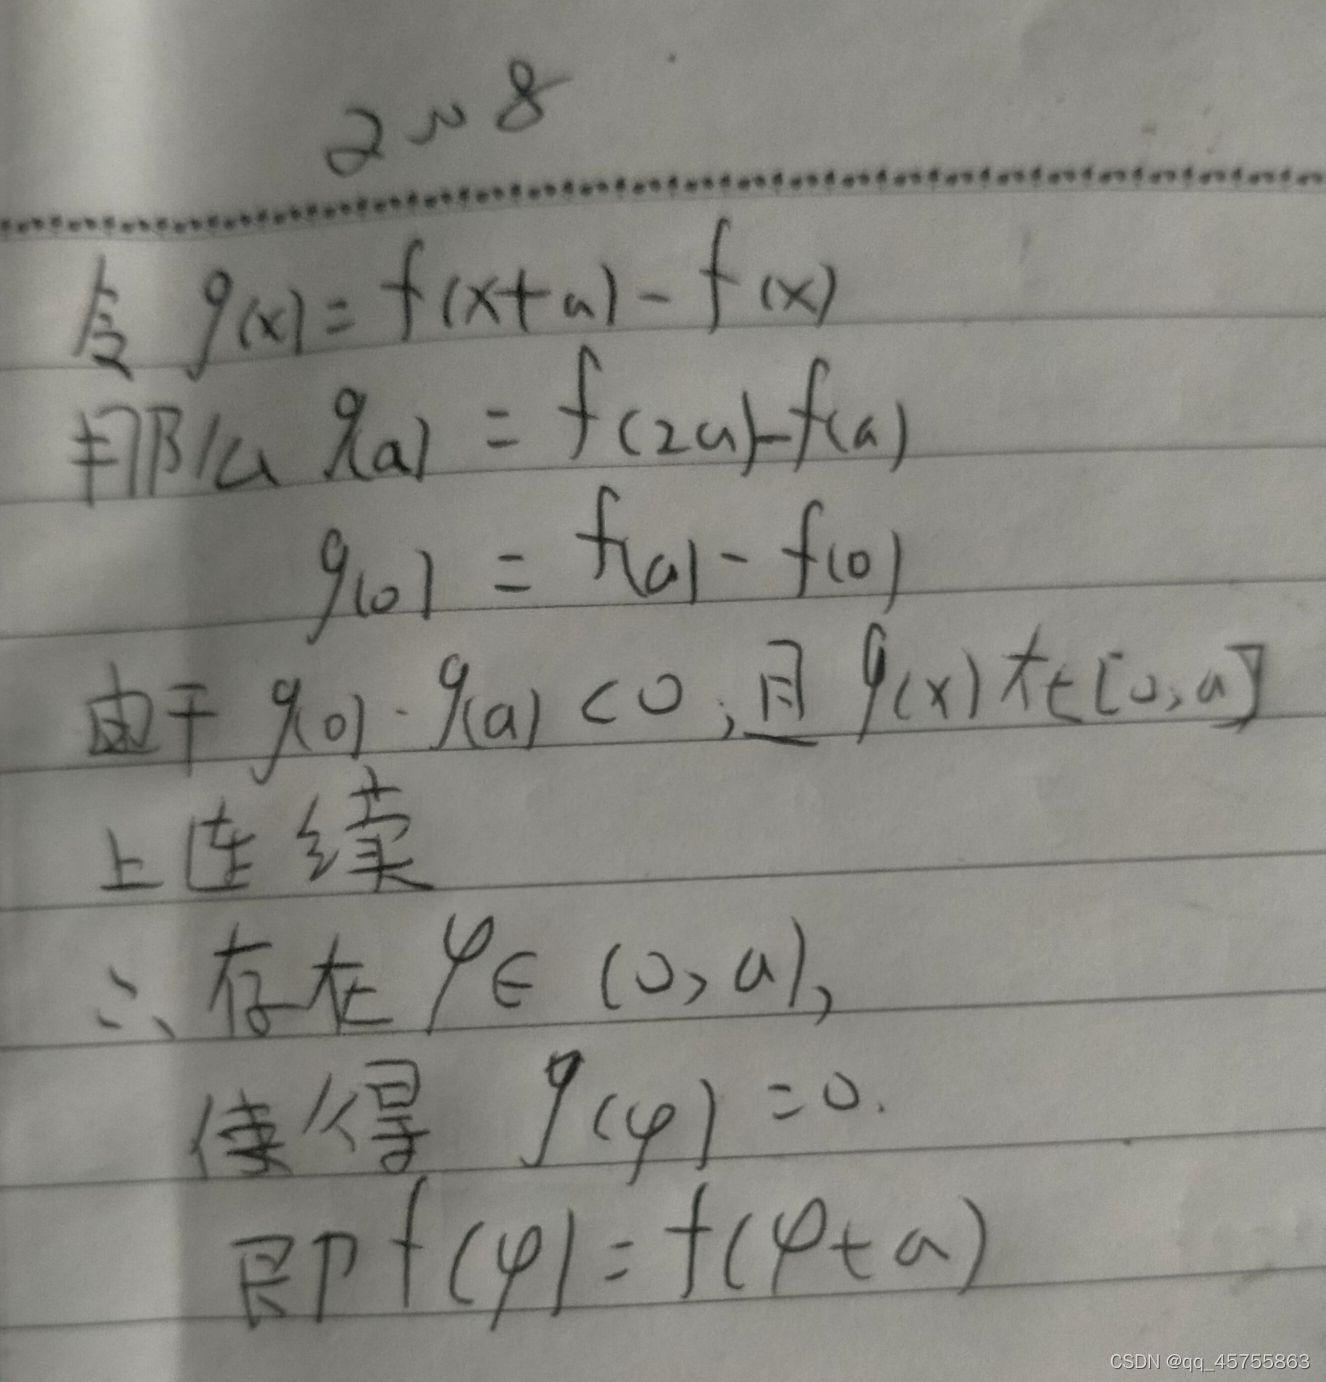 2~8
令 g(x) = f(x+a) - f(x)
那么 g(a) = f(2a) - f(a)
g(0) = f(a) - f(0)
由于 g(0)·g(a) < 0, 且 g(x) 在 [0, a]
上连续
∴ 存在 φ ∈ (0, a),
使得 g(φ) = 0.
即 f(φ) = f(φ+a)
CSDN @qq_45755863